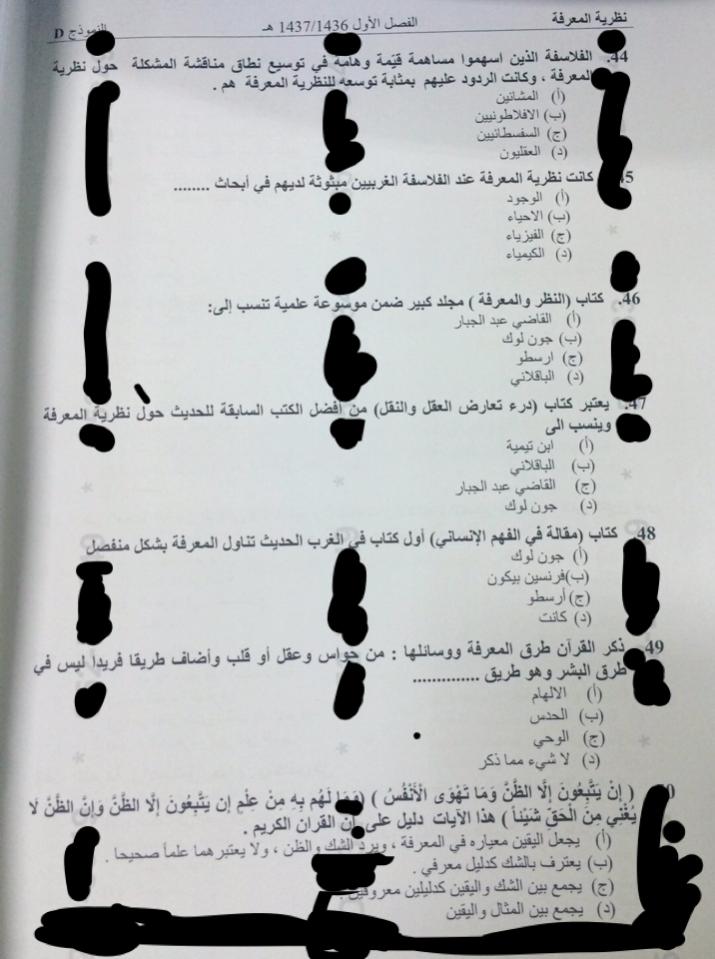 نظرية المعرفة
الفصل الأول 1437/1436 هـ
النموذج D
44. الفلاسفة الذين اسهموا مساهمة قيّمة وهامة في توسيع نطاق مناقشة المشكلة حول نظرية
المعرفة ، وكانت الردود عليهم بمثابة توسعه للنظرية المعرفة هم .
(أ) المشائين
(ب) الافلاطونيين
(ج) السفسطائيين
(د) العقليون
كانت نظرية المعرفة عند الفلاسفة الغربيين مبثوثة لديهم في أبحاث ........
(أ) الوجود
(ب) الاحياء
(ج) الفيزياء
(د) الكيمياء
46. كتاب (النظر والمعرفة ) مجلد كبير ضمن موسوعة علمية تنسب إلى:
(أ) القاضي عبد الجبار
(ب) جون لوك
(ج) ارسطو
(د) الباقلاني
47. يعتبر كتاب (درء تعارض العقل والنقل) من أفضل الكتب السابقة للحديث حول نظرية المعرفة
وينسب الى
(أ) ابن تيمية
(ب) الباقلاني
(ج) القاضي عبد الجبار
(د) جون لوك
48. كتاب (مقالة في الفهم الإنساني) أول كتاب في الغرب الحديث تناول المعرفة بشكل منفصل
(أ) جون لوك
(ب)فرنسين بيكون
(ج) أرسطو
(د) كانت
49. ذكر القرآن طرق المعرفة ووسائلها : من حواس وعقل أو قلب وأضاف طريقا فريدا ليس في
طرق البشر وهو طريق ..............
(أ) الالهام
(ب) الحدس
(ج) الوحي
(د) لا شيء مما ذكر
( إِنْ يَتَّبِعُونَ إِلَّا الظَّنَّ وَمَا تَهْوَى الْأَنْفُسُ ) (وَمَا لَهُم بِهِ مِنْ عِلْمٍ إِن يَتَّبِعُونَ إِلَّا الظَّنَّ وَإِنَّ الظَّنَّ لَا
يُغْنِي مِنَ الْحَقِّ شَيْئاً ) هذا الآيات دليل على أن القران الكريم .
(أ) يجعل اليقين معياره في المعرفة ، ويرد الشك والظن ، ولا يعتبرهما علماً صحيحا .
(ب) يعترف بالشك كدليل معرفي .
(ج) يجمع بين الشك واليقين كدليلين معروفين
(د) يجمع بين المثال واليقين